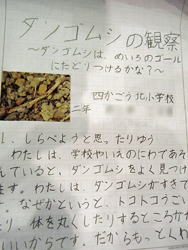 ダンゴムシの観察
～ダンゴムシは、めいろのゴール
にたどりつけるかな？～
四かごう北小学校
二年
1. しらべようと思ったりゆう
わたしは、学校やいえのにわであそ
んでいると、ダンゴムシをよく見つけ
ます。わたしは、ダンゴムシがすきで
す。なぜかというと、トコトコうごい
たり、体を丸くしたりするところがか
わいいからです。だからもっとくわ